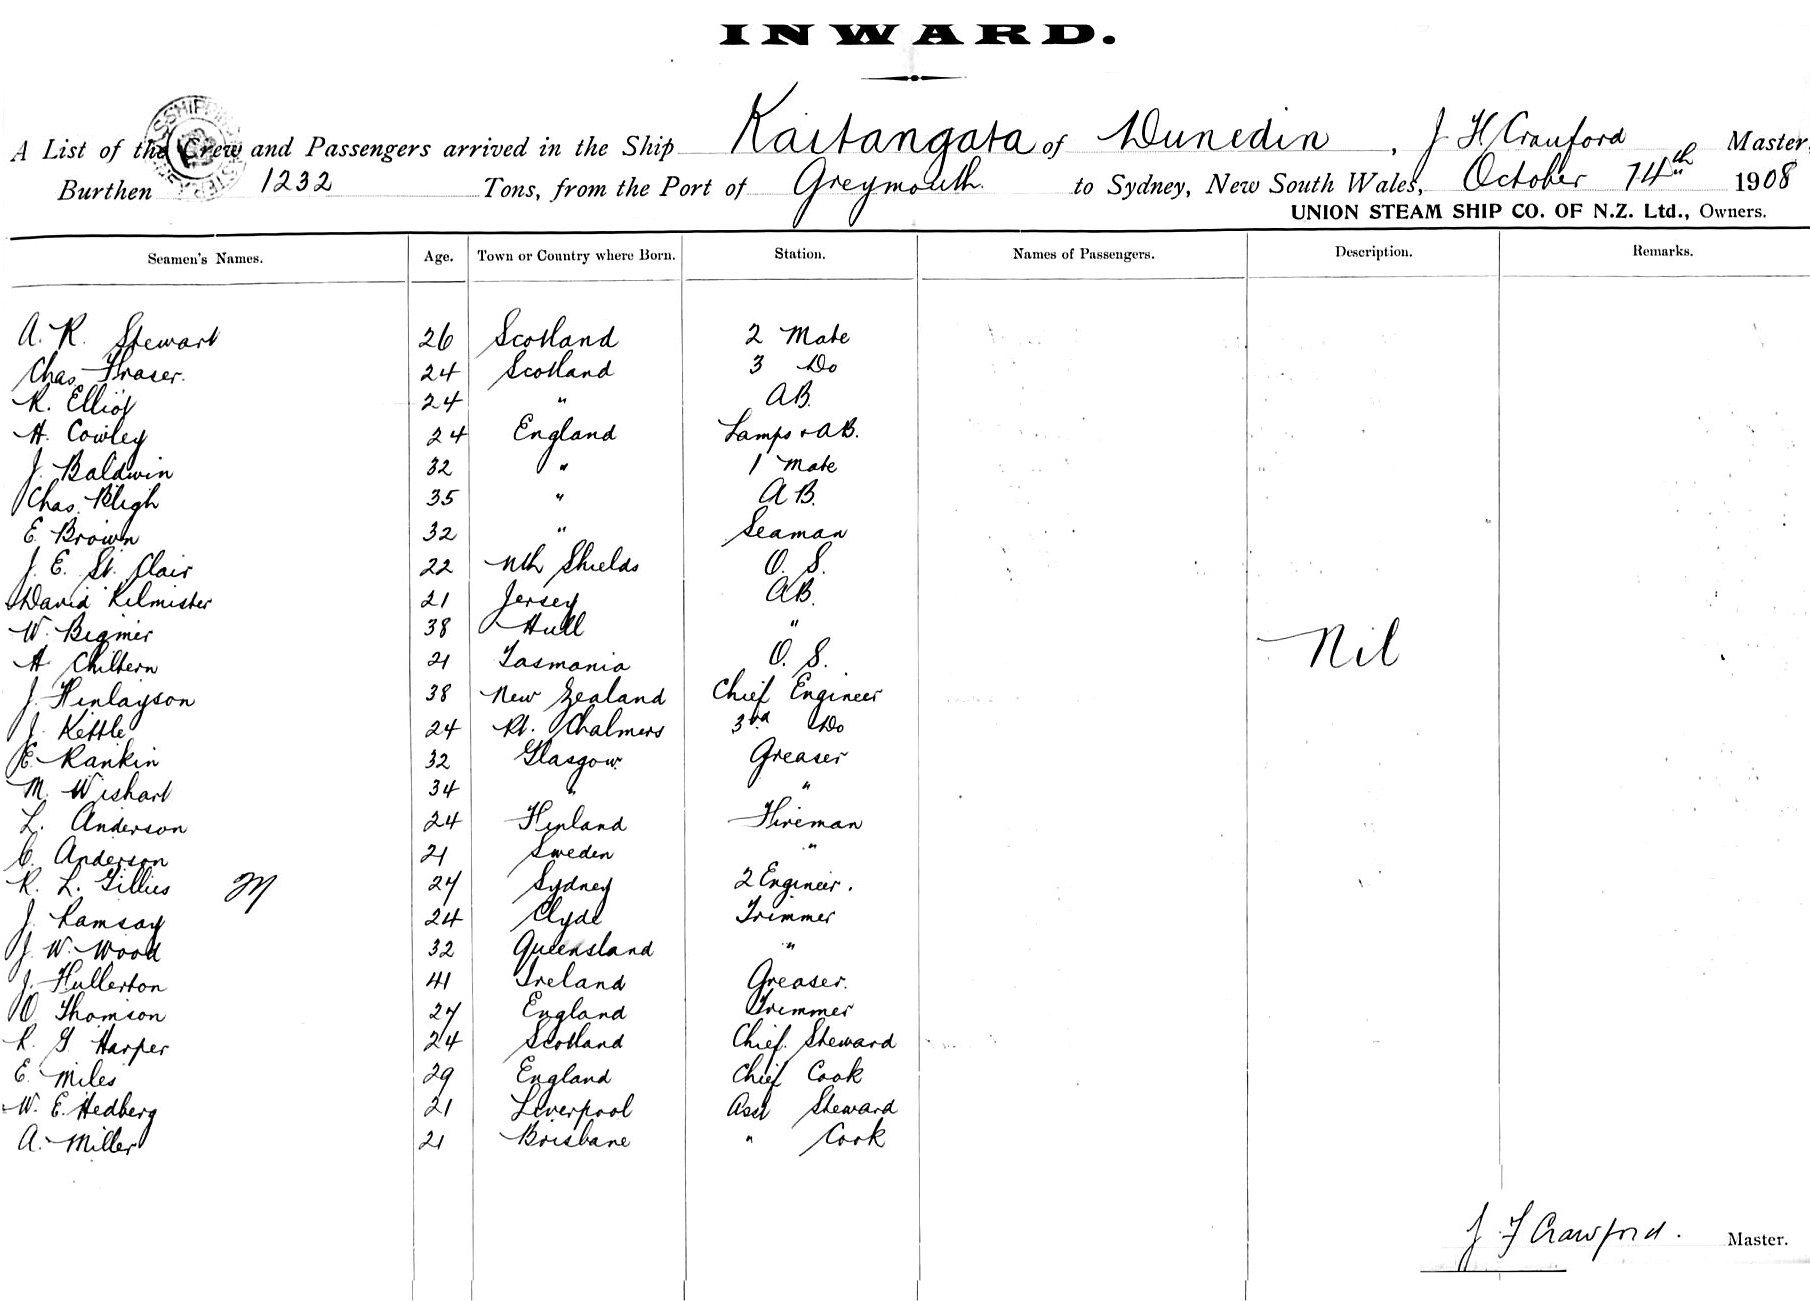 INWARD.
A List of the Crew and Passengers arrived in the Ship Kaitangata of Dunedin, J H Crauford Master,
Burthen 1232 Tons, from the Port of Greymouth to Sydney, New South Wales, October 14th 1908
UNION STEAM SHIP CO. OF N.Z. Ltd., Owners.
Seamen's Names. Age. Town or Country where Born. Station. Names of Passengers. Description. Remarks.
A. R. Stewart 26 Scotland 2 Mate
Chas Fraser. 24 Scotland 3 Do
R. Elliot 24 " AB.
H. Cowley 24 England Lamps & AB.
J. Baldwin 32 " 1 Mate
Chas. Bligh 35 " AB.
E. Brown 32 " Seaman
J. E. St. Clair 22 Nth Shields O. S.
David Kilmister 21 Jersey AB.
W. Bigmer 38 Hull "
Nil
H Chiltern 21 Tasmania O. S.
J. Finlayson 38 New Zealand Chief Engineer
J. Kettle 24 Pt. Chalmers 3rd Do
E. Rankin 32 Glasgow Greaser
M. Wishart 34 " "
L. Anderson 24 Finland Fireman
C. Anderson 21 Sweden "
R. L. Gillies M 27 Sydney 2 Engineer.
J. Ramsay 24 Clyde Trimmer
J. W. Wood 32 Queensland "
J. Fullerton 41 Ireland Greaser.
O. Thomson 27 England Trimmer
R. G. Harper 24 Scotland Chief Steward
E. Miles 29 England Chief Cook
W. E. Hedberg 21 Liverpool Asst Steward
A. Miller 21 Brisbane " Cook
J F Crawford. Master.